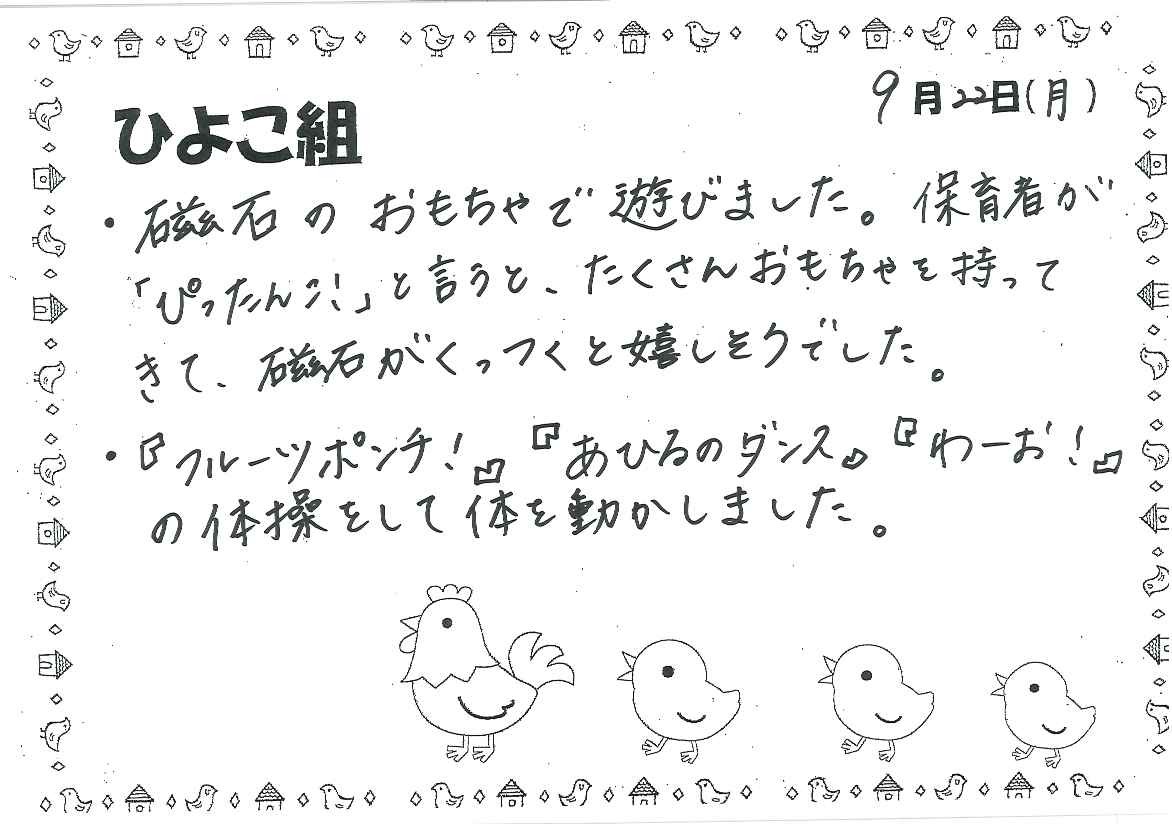 9月22日(月)
ひよこ組
・磁石のおもちゃで遊びました。保育者が
「ぴったんこ!」と言うと、たくさんおもちゃを持って
きて、磁石がくっつくと嬉しそうでした。
・『フルーツポンチ!』『あひるのダンス』『わーお!』
の体操をして体を動かしました。